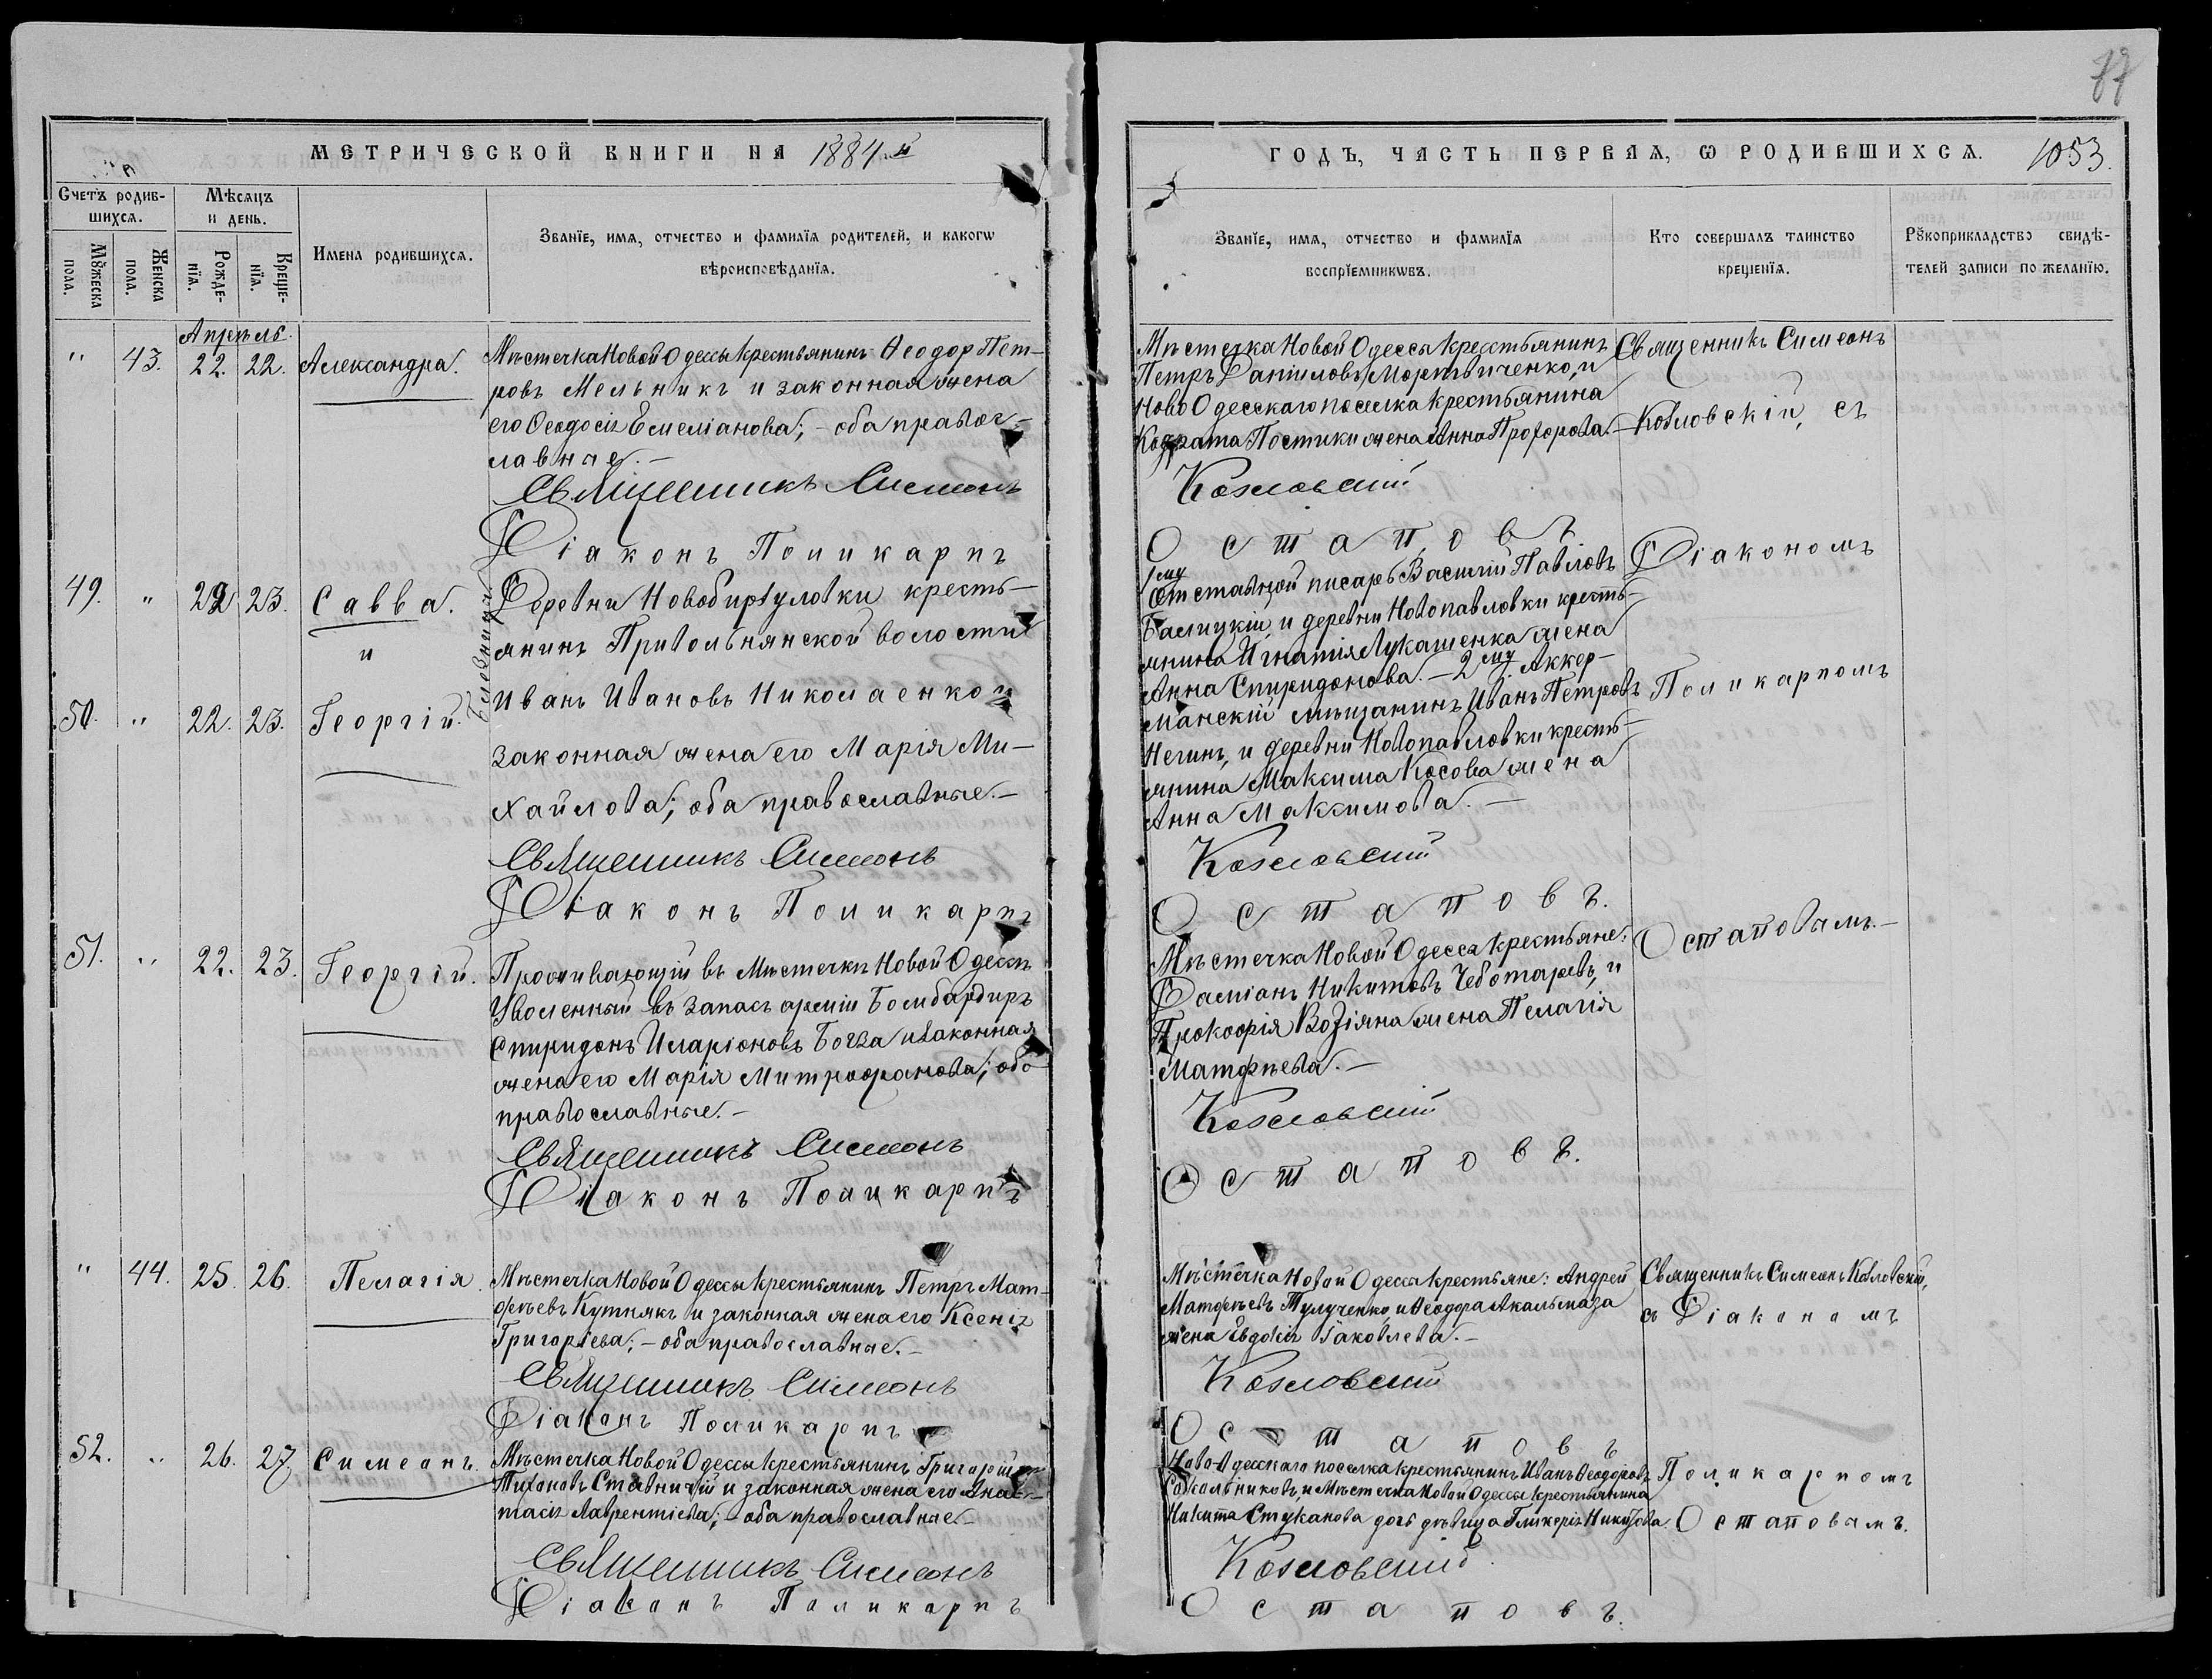 77
МЕТРИЧЕСКОЙ КНИГИ НА 1884 й
ГОДЪ, ЧАСТЬ ПЕРВАЯ, Ѡ РОДИВШИХСѦ. 1053.
Счетъ родив-
шихсѧ.
Мѣсяцъ
и день.
Мꙋжеска
пола.
Женска
пола.
Рожде-
нїѧ.
Креще-
нїѧ.
Имена родившихсѧ.
Званїе, имѧ, отчество и фамилїѧ родителей, и какогѡ
вѣроисповѣданїѧ.
Званїе, имѧ, отчество и фамилїѧ
воспрїемникѡвъ.
Кто совершалъ таинство
крещенїѧ.
Рꙋкоприкладство свидѣ-
телей записи по желанїю.
Апрѣль.
" 43. 22. 22. Александра.
Мѣстечка Новой Одессы крестьянинъ Ѳеодор Пет-
ровъ Мельникъ и законная жена
его Ѳеодосія Емеліанова; - оба правос-
лавные. -
Священникъ Симеонъ
Діаконъ Поликарпъ
Мѣстечка Новой Одесса крестьянинъ
Петръ Даніиловъ Мортвиченко, и
Ново Одесскаго поселка крестьянина
Кодрата Постики жена Анна Профорова. -
Козловскій
Остаповъ
Священникъ Симеонъ
Козловскій, съ
49. " 22 23. Савва.
и
50. " 22. 23. Георгій.
близнецы
Деревни Новобирзуловки кресть-
янинъ Привольнянской волости
Иванъ Ивановъ Николаенко и
законная жена его Марія Ми-
хайлова; оба православные. -
Священникъ Симеонъ
Діаконъ Поликарпъ
1му
Отставной писарь Василій Павловъ
Балицкій, и деревни Новопавловки кресть-
янина Игнатія Лукашенка жена
Анна Спиридонова. - 2му. Аккер-
манскій мѣщанинъ Иванъ Петровъ
Негинъ, и деревни Новопавловки кресть-
янина Максима Косова жена
Анна Максимова. -
Козловскій
Остаповъ.
Діакономъ
Поликарпомъ
Остаповымъ. -
51. " 22. 23. Георгій.
Проживающій въ Мѣстечкѣ Новой Одессѣ
Уволенный въ запасъ арміи Бомбардиръ
Спиридонъ Иларіоновъ Богза и законная
жена его Марія Митрофанова; оба
православные. -
Священникъ Симеонъ
Діаконъ Поликарпъ
Мѣстечка Новой Одесса крестьяне:
Даміанъ Никитовъ Чеботаревъ, и
Прокофія Возіяна жена Пелагія
Матфѣева. -
Козловскій
Остаповъ.
" 44. 25. 26. Пелагія
Мѣстечка Новой Одессы крестьянинъ Петръ Мат-
фѣевъ Кутнякъ и законная жена его Ксенія
Григорьева; - оба православные. -
Священникъ Симеонъ
Діаконъ Поликарпъ
Мѣстечка Новой Одесса крестьяне: Андрей
Матфѣевъ Тулученко, и Ѳеодора Акальмаза
жена Евдокія Іаковлева. -
Козловскій
Остаповъ
Священникъ Симеонъ Козловскій,
съ Діакономъ
52. " 26. 27. Симеонъ.
Мѣстечка Новой Одессы крестьянинъ Григорій
Тихоновъ Ставничій и законная жена его Анас-
тасія Лаврентіева; - оба православные. -
Священникъ Симеонъ
Діаконъ Поликарпъ
Ново-Одесскаго поселка крестьянинъ Иванъ Ѳеодоровъ
Сокольниковъ, и Мѣстечка Новой Одессы крестьянина
Никита Стуканова дочь дѣвица Гликерія Никитова.
Козловскій
Остаповъ.
Поликарпомъ
Остаповымъ.